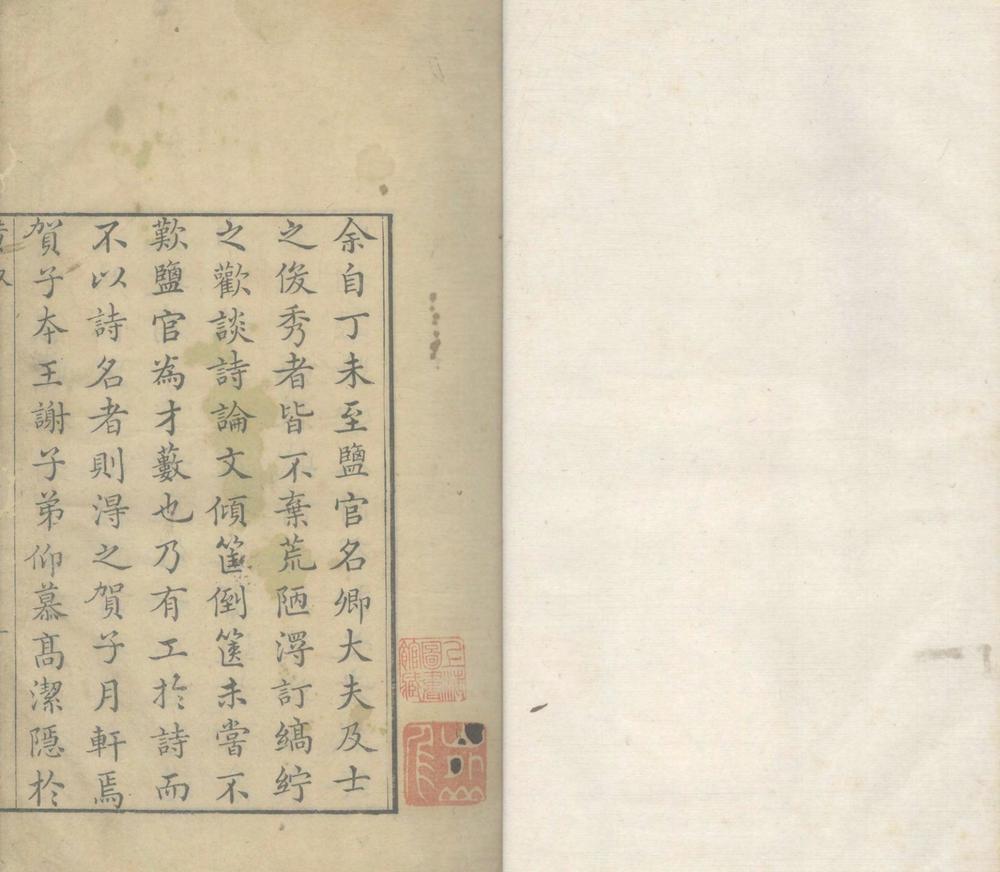 余自丁未至鹽官名卿大夫及士
之俊秀者皆不棄荒陋淂訂縞紵
之歡談詩論文傾筐倒篋未嘗不
歎鹽官為才藪也乃有工於詩而
不以詩名者則淂之賀子月軒焉
賀子本王謝子弟仰慕高潔隱於
上海圖書館藏